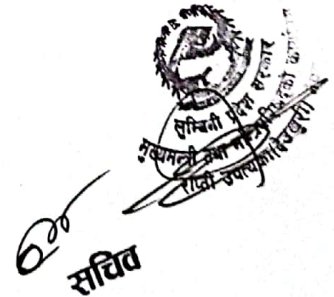 लुम्बिनी प्रदेश सरकार
मुख्यमन्त्री तथा मन्त्रिपरिषद्को कार्यालय
राप्ती उपत्यका (देउखुरी)
सचिव